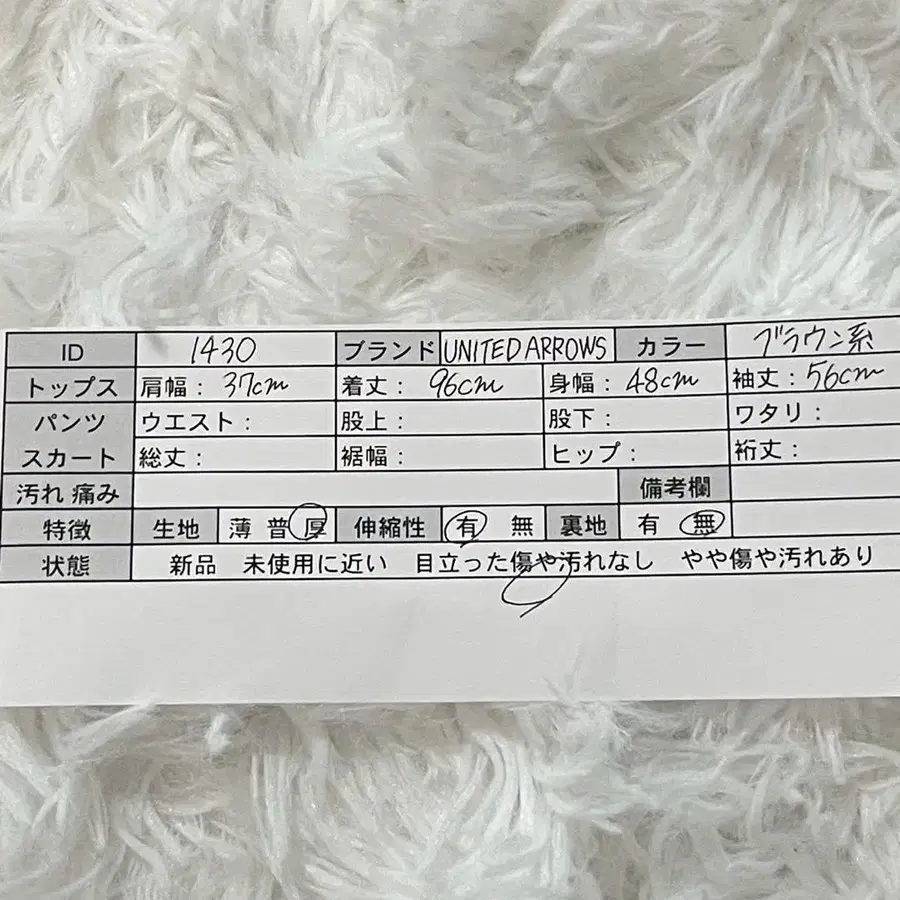 ID 1430 ブランド UNITED ARROWS カラー ブラウン系
トップス 肩幅: 37cm 着丈: 96cm 身幅: 48cm 袖丈: 56cm
パンツ ウエスト: 股上: 股下: ワタリ:
スカート 総丈: 裾幅: ヒップ: 裄丈:
汚れ 痛み 備考欄
特徴 生地 薄 普 厚 伸縮性 有 無 裏地 有 無
状態 新品 未使用に近い 目立った傷や汚れなし やや傷や汚れあり